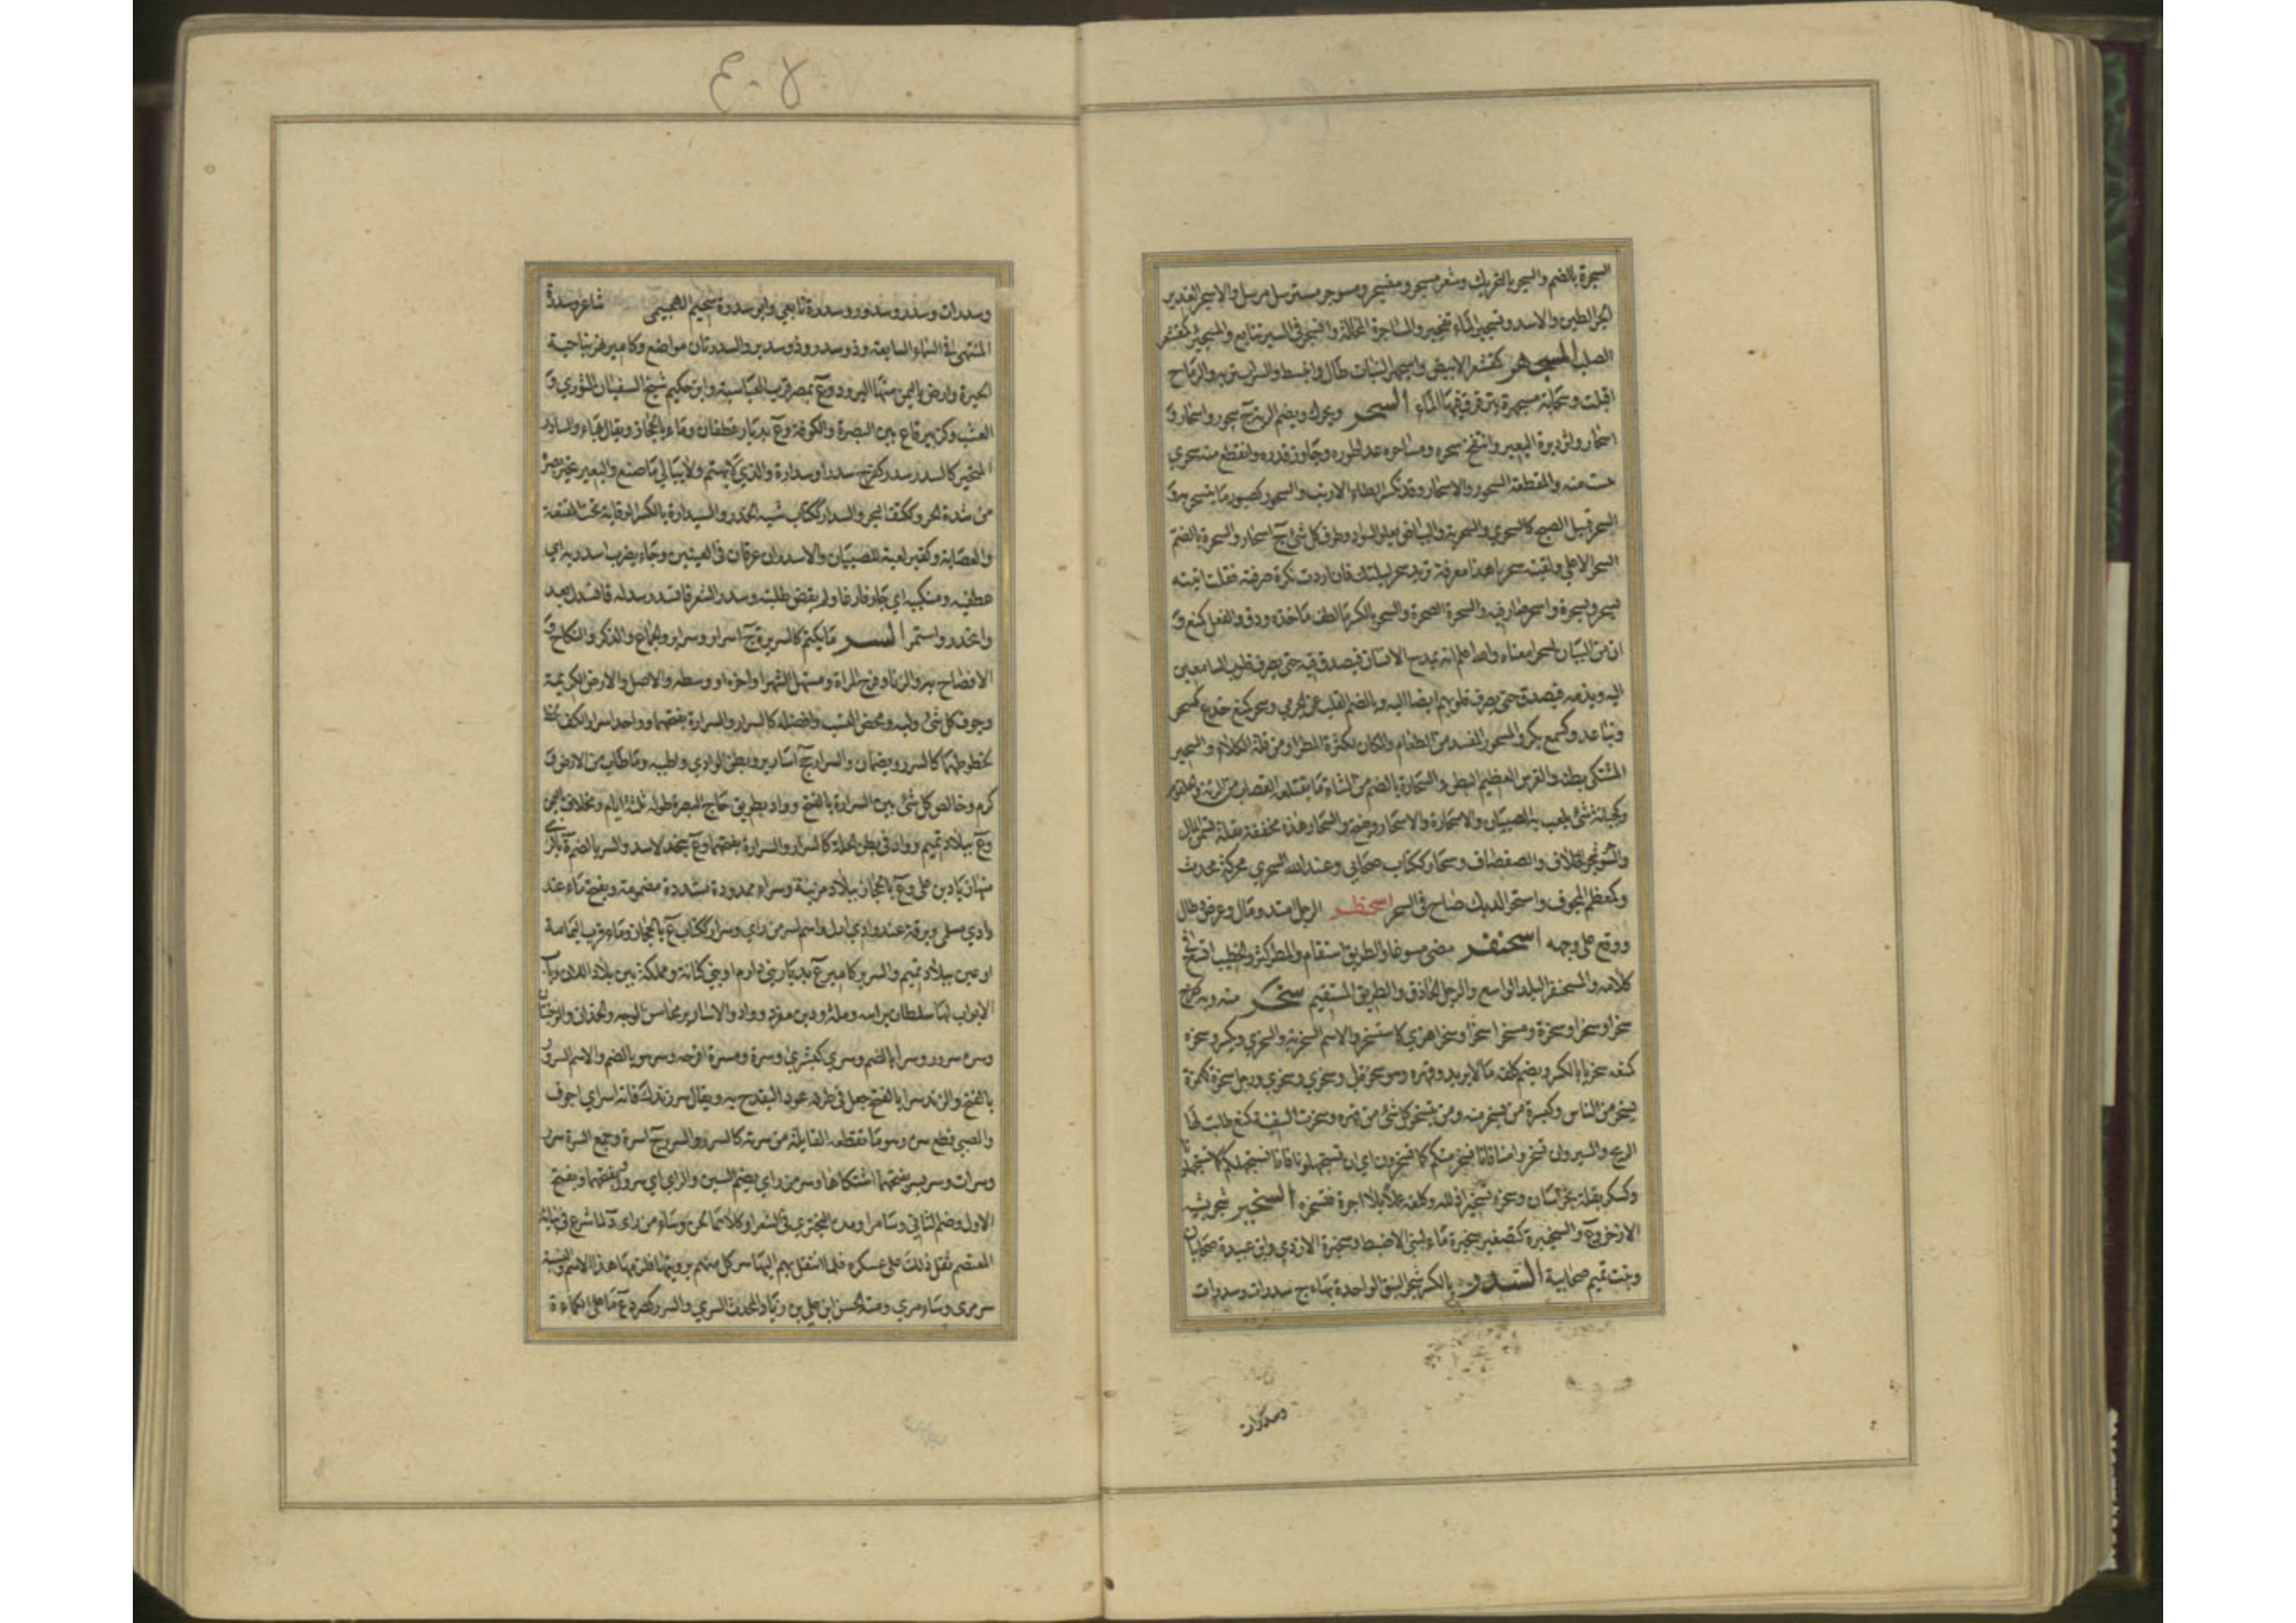 السجرة بالضم والسجر بالتحريك وشعر مسجر ومنسجر ومسوجر مسترسل مرسل والاسجر الغدير
الحر الطين والاسد وتسجير الماء تفجيره والساجرة المخلاة وانسجر في السير تتابع والمسجئر كمقشعر
الصلب المسجهر كمقشعر الابيض واسجهر النبات طال وانبسط والسراب تريه والرماح
اقبلت وسحابة مسجهرة يترقرق فيها الماء السحر ويحرك ويضم الرئة ج سحور واسحار و
اسحار واثر دبرة البعير وانتفخ سحره ومساحره عدا طوره وجاوز قدره وانقطع منه سحري
يئست منه والمقطعة السحور والاسحار وقد تكسر الطاء الارنب والسحور كصبور ما يتسحر به و
السحر قبيل الصبح كالسحري والسحرية والبياض يعلو السواد وطرف كل شئ ج اسحار والسحرة بالضم
السحر الاعلى ولقيته سحر يا هذا معرفة تريد سحر ليلتك فان اردت نكرة صرفته فقلت اتيته
بسحر وبسحرة واسحر صار فيه والسحرة الصحرة والسحر بالكسر ما لطف ماخذه ودق والفعل كمنع و
ان من البيان لسحرا معناه والله اعلم انه يمدح الانسان فيصدق فيه حتى يصرف قلوب السامعين
اليه ويذمه فيصدق حتى يصرف قلوبهم ايضا اليه وبالضم القلب عن الجرمي وسحر كمنع خدع كسحر
وتباعد وكسمع بكر والمسحور المفسد من الطعام والمكان لكثرة المطر او من قلة الكلاء والسحير
المشتكي بطنه والفرس العظيم البطن والسحارة بالضم من الشاة ما يقتلعه القصاب من الرئة والحلقوم
وكجبانة شئ يلعب به الصبيان والاسحارة والاسحار ويفتح والسحار هذه مخففة بقلة تسمن المال
والسوحر شجر الخلاف والصفصاف وسحار ككتاب صحابي وعبد الله السحري محركة محدث
وكمعظم المجوف واستحر الديك صاح في السحر اسحنطر الرجل امتد ومال وعرض وطال
ووقع على وجهه اسحنفر مضى مسرعا والطريق استقام والمطر كثر والخطيب اتسع في
كلامه والمسحنفر البلد الواسع والرجل الحاذق والطريق المستقيم سخر منه وبه كفرح
سخرا وسخرا وسخرة ومسخرا وسخرا وسخرا هزئ كاستسخر والاسم السخرية والسخري ويكسر وسخره
كمنعه سخريا بالكسر ويضم كلفه ما لا يريد وقهره وهو سخرة لي وسخري وسخري ورجل سخرة كهمزة
يسخر من الناس وكبسرة من يسخر منه ومن يتسخر كل شئ من قهره وسخرت السفينة كمنع طابت لها
الريح والسير وان تسخروا منا فانا نسخر منكم كما تسخرون اي ان تستجهلونا فانا نستجهلكم كما تستجهلونا
وكسكر بقلة بخراسان وسخره تسخيرا ذلله وكلفه عملا بلا اجرة فتسخره السخبر شجر يشبه
الاذخر وع والسخيبرة كتصغير سخبرة ماء لبني الاضبط وسخبرة الازدي وابن عبيدة صحابيان
وبنت تميم صحابية السدر بالكسر شجر النبق الواحدة بهاء ج سدرات وسدرات
وسدرات
لا ع
وسدرات وسدر وسدور وسدرة تابعي وابو سدرة سحيم الهجيمي شاعر وسدرة
المنتهى في السماء السابعة وذو سدر وذو سدير والسدرتان مواضع وكامير نهر بناحية
الحيرة وارض باليمن منها البرود وع بمصر قرب العباسية وابن حكيم شيخ لسفيان الثوري و
العشب وكزبير قاع بين البصرة والكوفة وع بديار غطفان وماء بالحجاز ويقال بهاء والسادر
المتحير كالسدر سدر كفرح سدرا وسدارة والذي لا يهتم ولا يبالي ما صنع والبعير تحير بصره
من شدة الحر وككتف البحر والسدار ككتاب شبه الخدر والسيدارة بالكسر الوقاية تحت المقنعة
والعصابة وكقبر لعبة للصبيان والاسدران عرقان في العينين وجاء يضرب اسدريه اي
عطفيه ومنكبيه اي جاء فارغا ولم يقض طلبته وسدر الشعر فانسدر وسدله فانسدل وانسدر يعدو
وانحدر واستمر السر ما يكتم كالسريرة ج اسرار وسراير والجماع والذكر والنكاح و
الافصاح به والزنا وفرج المراة ومستهل الشهر او اخره او وسطه والاصل والارض الكريمة
وجوف كل شئ ولبه ومحض النسب وافضله كالسرار والسرارة بفتحهما وواحد اسرار الكف
لخطوطها كالسرر ويضمان والسرار جج اسارير وبطن الوادي واطيبه وما طاب من الارض و
كرم وخالص كل شئ بين السرارة بالفتح وواد بطريق حاج البصرة طوله ثلثة ايام ومخلاف باليمن
وع ببلاد تميم وواد في بطن الحلة كالسرار والسرارة بفتحهما وع بنجد لاسد والسر بالضم ة بالري
منها زياد بن علي وع بالحجاز ببلاد مزينة وسراء ممدودة مشددة مضمومة ويفتح ماء عند
وادي سلمى وبرقة عند وادي ارل واسم لسر من راي وسرار ككتاب ع بالحجاز وماء قرب اليمامة
او عين ببلاد تميم والسرير كامير ع بديار بني دارم او بني كنانة ومملكة بين بلاد اللان وباب
الابواب لها سلطان براسه وملة ودين مفرد وواد والاسارير محاسن الوجه والخدان والوجنتان
وسره سرورا وسرا بالضم وسرى كبشرى وتسرة ومسرة افرحه وسر هو بالضم والاسم السرور
بالفتح والزند سرا بالفتح جعل في طرفه عودا ليقدح به ويقال سر زندك فانه اسر اي اجوف
والصبي قطع سره وهو ما تقطعه القابلة من سرته كالسرر والسرر ج اسرة وجمع السرة سرر
وسرات وسر يسر بفتحهما اشتكاها وسر من راي بضم السين والراء اي سرور وبفتحهما وبفتح
الاول وضم الثاني وسامرا ومده البحتري في الشعر او كلاهما لحن وساء من راى د لما شرع في بنائه
المعتصم ثقل ذلك على عسكره فلما انتقل بهم اليها سر كل منهم برويتها فلزمها هذا الاسم والنسبة
سرمري وسامري وسري ومنه الحسن ابن علي بن زياد المحدث السري والسرر كصرد ع ما على الكماءة